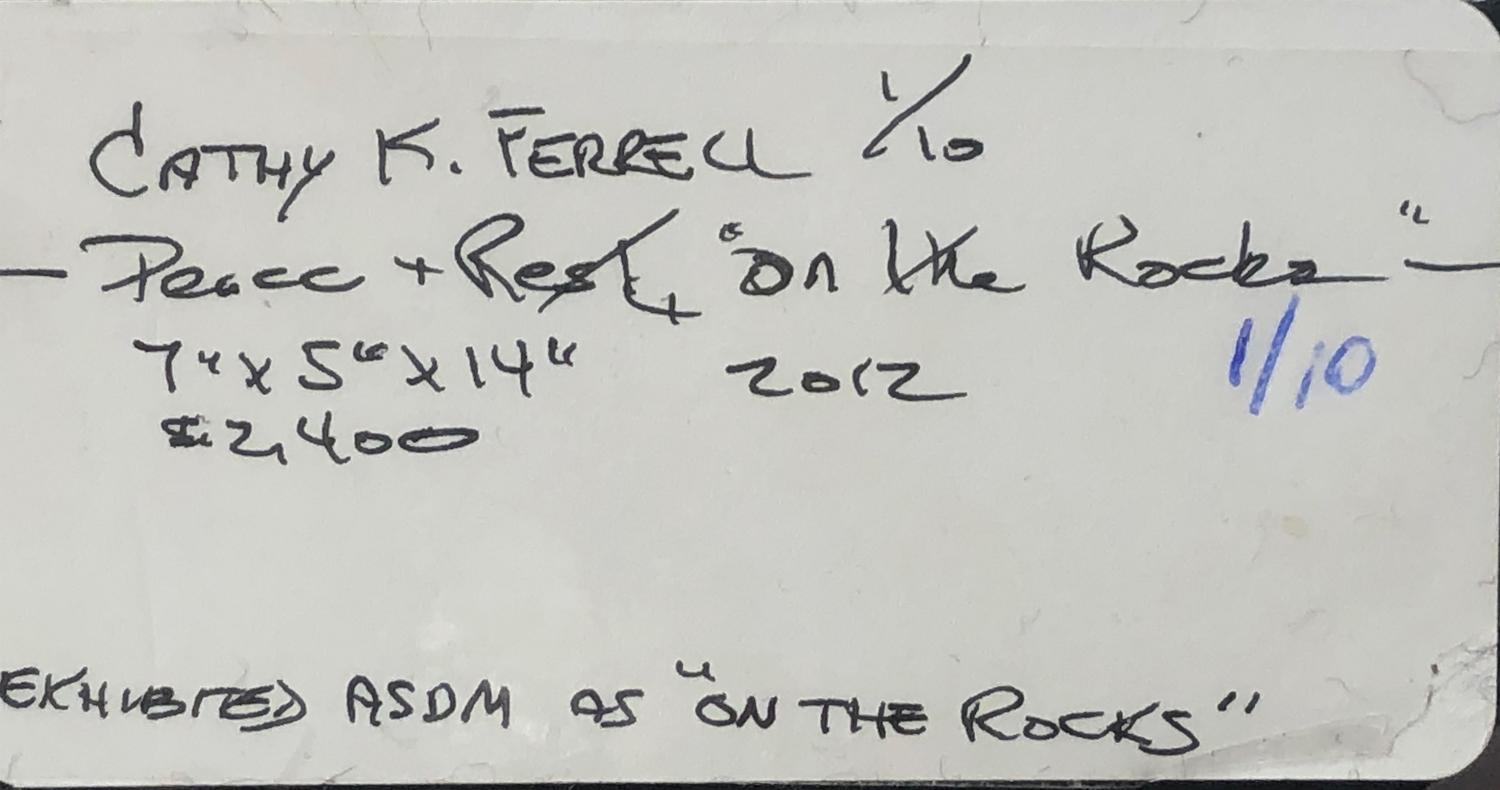 CATHY K. FERRELL 1/10
— Peace + Rest, "On the Rocks" —
7" x 5" x 14" 2012 1/10
$2,400
EXHIBITED ASDM AS "ON THE ROCKS"